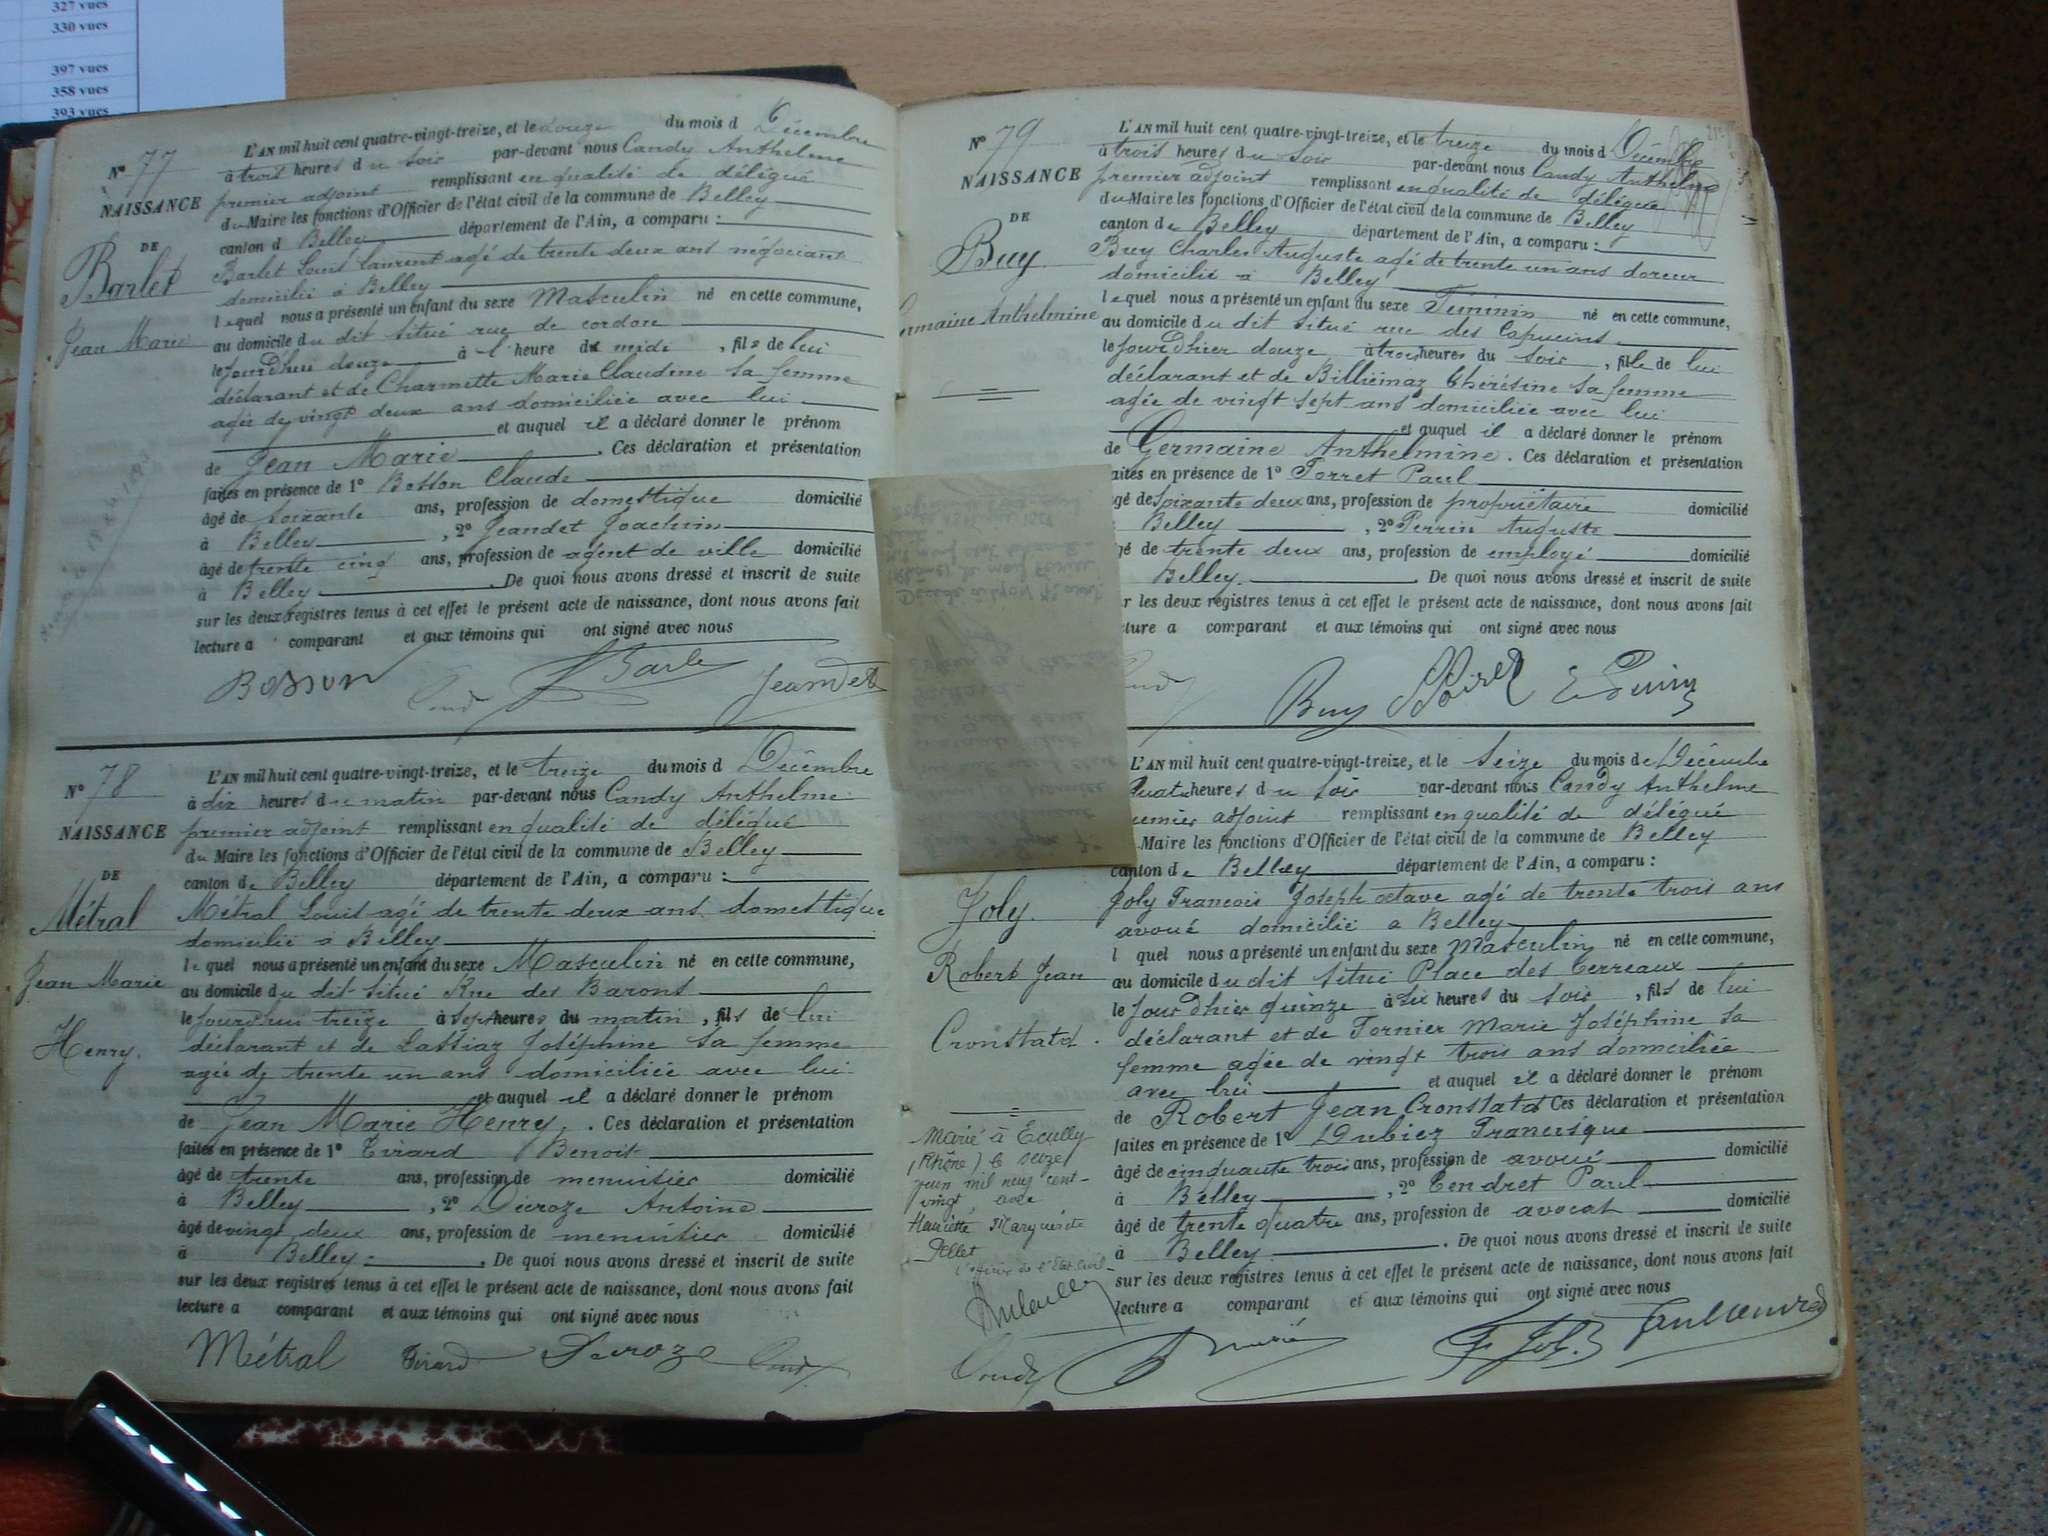 327 vues
330 vues
397 vues
358 vues
393 vues
N° 77
NAISSANCE
DE
Barlet
Jean Marie
L'AN mil huit cent quatre-vingt-treize, et le douze du mois d Décembre
à trois heures du soir par-devant nous Candy Anthelme
premier adjoint remplissant en qualité de délégué
du Maire les fonctions d'Officier de l'état civil de la commune de Belley
canton d Belley département de l'Ain, a comparu :
Barlet Louis Laurent agé de trente deux ans négociant
domicilié à Belley
lequel nous a présenté un enfant du sexe Masculin né en cette commune,
au domicile du dit situé rue de cordon
le jourd'hui douze à 1 heure de midi , fils de lui
déclarant et de Charmette Marie Claudine sa femme
agée de vingt deux ans domiciliée avec lui
et auquel il a déclaré donner le prénom
de Jean Marie . Ces déclaration et présentation
faites en présence de 1° Bosson Claude
âgé de soixante ans, profession de domestique domicilié
à Belley , 2° Jeandet Joachim
âgé de trente cinq ans, profession de agent de ville domicilié
à Belley . De quoi nous avons dressé et inscrit de suite
sur les deux registres tenus à cet effet le présent acte de naissance, dont nous avons fait
lecture a comparant et aux témoins qui ont signé avec nous
Bosson Candy Barlet Jeandet
N° 78
NAISSANCE
DE
Métral
Jean Marie
Henry.
L'AN mil huit cent quatre-vingt-treize, et le treize du mois d Décembre
à dix heures du matin par-devant nous Candy Anthelme
premier adjoint remplissant en qualité de délégué
du Maire les fonctions d'Officier de l'état civil de la commune de Belley
canton de Belley département de l'Ain, a comparu :
Métral Louis agé de trente deux ans domestique
domicilié à Belley
lequel nous a présenté un enfant du sexe Masculin né en cette commune,
au domicile du dit situé Rue des Barons
le jourd'hui treize à sept heures du matin , fils de lui
déclarant et de Lassiaz Joséphine sa femme
agée de trente un ans domiciliée avec lui
et auquel il a déclaré donner le prénom
de Jean Marie Henry . Ces déclaration et présentation
faites en présence de 1° Tirard Benoit
âgé de trente ans, profession de menuisier domicilié
à Belley , 2° Décroze Antoine
âgé de vingt deux ans, profession de menuisier domicilié
à Belley . De quoi nous avons dressé et inscrit de suite
sur les deux registres tenus à cet effet le présent acte de naissance, dont nous avons fait
lecture a comparant et aux témoins qui ont signé avec nous
Métral Tirard Decroze Candy
N° 79
NAISSANCE
DE
Buy
Germaine Anthelmine
L'AN mil huit cent quatre-vingt-treize, et le treize du mois d Décembre
à trois heures du soir par-devant nous Candy Anthelme
premier adjoint remplissant en qualité de délégué
du Maire les fonctions d'Officier de l'état civil de la commune de Belley
canton de Belley département de l'Ain, a comparu :
Buy Charles Auguste agé de trente un ans doreur
domicilié à Belley
lequel nous a présenté un enfant du sexe Féminin né en cette commune,
au domicile du dit situé rue des Capucins
le jourd'hier douze à trois heures du soir , fille de lui
déclarant et de Billiémaz Thérésine sa femme
agée de vingt sept ans domiciliée avec lui
et auquel il a déclaré donner le prénom
de Germaine Anthelmine . Ces déclaration et présentation
faites en présence de 1° Porret Paul
âgé de soixante deux ans, profession de propriétaire domicilié
Belley , 2° Perrin Auguste
gé de trente deux ans, profession de employé domicilié
Belley . De quoi nous avons dressé et inscrit de suite
r les deux registres tenus à cet effet le présent acte de naissance, dont nous avons fait
cture a comparant et aux témoins qui ont signé avec nous
Buy
Joly
Robert Jean
Cronstatd
L'AN mil huit cent quatre-vingt-treize, et le Seize du mois de Décembre
Quatre heures du soir par-devant nous Candy Anthelme
premier adjoint remplissant en qualité de délégué
Maire les fonctions d'Officier de l'état civil de la commune de Belley
canton de Belley département de l'Ain, a comparu :
Joly Francois Joseph octave agé de trente trois ans
avoué domicilié a Belley
l quel nous a présenté un enfant du sexe Masculin né en cette commune,
au domicile du dit situé Place des Terreaux
le jourd'hier quinze à six heures du soir , fils de lui
déclarant et de Tornier Marie Joséphine sa
femme agée de vingt trois ans domiciliée
avec lui et auquel il a déclaré donner le prénom
de Robert Jean Cronstatd Ces déclaration et présentation
faites en présence de 1° Dubiez Francisque
âgé de cinquante trois ans, profession de avoué domicilié
à Belley , 2° Tendret Paul
âgé de trente quatre ans, profession de avocat domicilié
à Belley . De quoi nous avons dressé et inscrit de suite
sur les deux registres tenus à cet effet le présent acte de naissance, dont nous avons fait
lecture a comparant et aux témoins qui ont signé avec nous
Marié à Ecully
(Rhône) le seize
juin mil neuf cent
vingt, avec
Henriette Marguerite
Pellet
L'officier de l'Etat civil
Candy F Joly